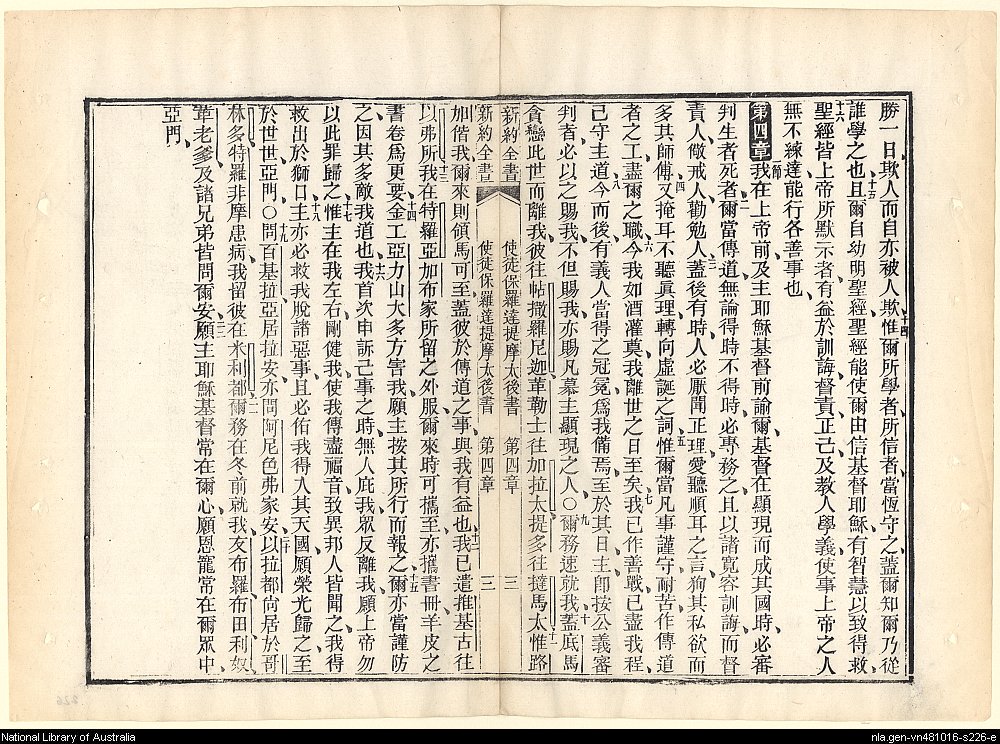 勝一日欺人而自亦被人欺十四惟爾所學者所信者當恆守之蓋爾知爾乃從
誰學之也十五且爾自幼明聖經聖經能使爾由信基督耶穌有智慧以致得救
十六聖經皆上帝所默示者有益於訓誨督責正己及教人學義使事上帝之人
無不練達能行各善事也
第四章一節我在上帝前及主耶穌基督前諭爾基督在顯現而成其國時必審
判生者死者二爾當傳道無論得時不得時必專務之且以諸寬容訓誨而督
責人儆戒人勸勉人三蓋後有時人必厭聞正理愛聽順耳之言狥其私欲而
多其師傅四又掩耳不聽眞理轉向虛誕之詞五惟爾當凡事謹守耐苦作傳道
者之工盡爾之職六今我如酒灌奠我離世之日至矣七我已作善戰已盡我程
己守主道八今而後有義人當得之冠冕爲我備焉至於其日主卽按公義審
判者必以之賜我不但賜我亦賜凡慕主顯現之人○九爾務速就我十蓋底馬
貪戀此世而離我彼往帖撒羅尼迦革勒士往加拉太提多往撻馬太十一惟路
新約全書 使徒保羅達提摩太後書 第四章 三
新約全書 使徒保羅達提摩太後書 第四章 三
加偕我爾來則領馬可至蓋彼於傳道之事與我有益也十二我已遣推基古往
以弗所十三我在特羅亞加布家所留之外服爾來時可攜至亦攜書冊羊皮之
書卷爲更要十四金工亞力山大多方害我願主按其所行而報之十五爾亦當謹防
之因其多敵我道也十六我首次申訴己事之時無人庇我眾反離我願上帝勿
以此罪歸之十七惟主在我左右剛健我使我傳盡福音致異邦人皆聞之我得
救出於獅口十八主亦必救我脫諸惡事且必佑我得入其天國願榮光歸之至
於世世亞門○十九問百基拉亞居拉安亦問阿尼色弗家安二十以拉都尙居於哥
林多特羅非摩患病我留彼在米利都二一爾務在冬前就我友布羅布田利奴
革老爹及諸兄弟皆問爾安二二願主耶穌基督常在爾心願恩寵常在爾眾中
亞門
National Library of Australia
nla.gen-vn481016-s226-e